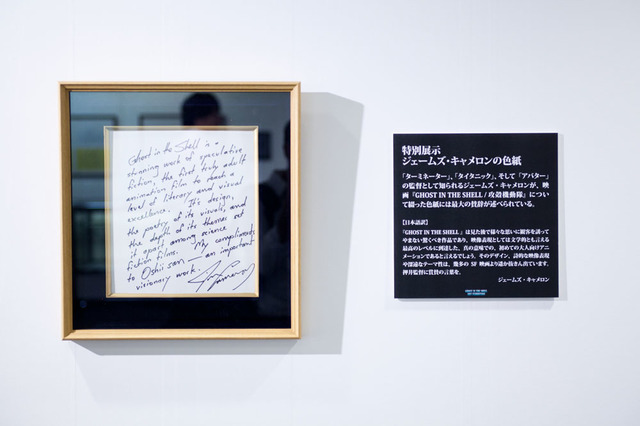 Ghost in the Shell is a
stunning work of speculative
fiction, the first truly adult
animation film to reach a
level of literary and visual
excellence. It's design,
the poetry of its visuals, and
the depth of its themes set
it apart among science
fiction films. My compliments
to Oshii san — an important
visionary work.
特別展示
ジェームズ・キャメロンの色紙
「ターミネーター」、「タイタニック」、そして「アバター」
の監督として知られるジェームズ・キャメロンが、映
画『GHOST IN THE SHELL / 攻殻機動隊』について
綴った色紙には最大の賛辞が述べられている。
【日本語訳】
『GHOST IN THE SHELL』は見た後で様々な思いに観客を誘って
やまない驚くべき作品であり、映像表現としては文学的とも言える
最高のレベルに到達した、真の意味での、初めての大人向けアニ
メーションであると言えるでしょう。そのデザイン、詩的な映像表現
や深遠なテーマ性は、幾多の SF 映画より遥か抜きん出ています。
押井監督に賞賛の言葉を。
ジェームズ・キャメロン
GHOST IN THE SHELL